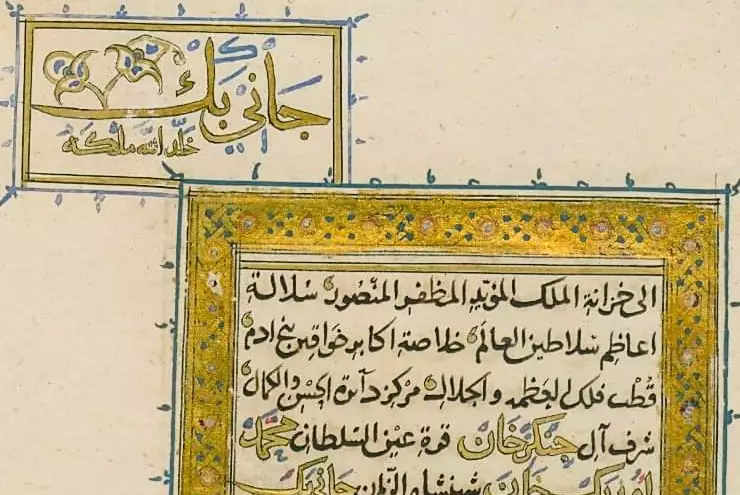 جاني بك
خلد الله ملكه
الى خزانة الملك المؤيد المظفر المنصور سلالة
اعاظم سلاطين العالم خلاصة اكابر خواقين بني ادم
قطب فلك العظمة و الجلال مركز دائرة الحسن والكمال
شرف آل جنكز خان قرة عين السلطان محمد
اوزبك خان شهنشاه الزمان جاني بك